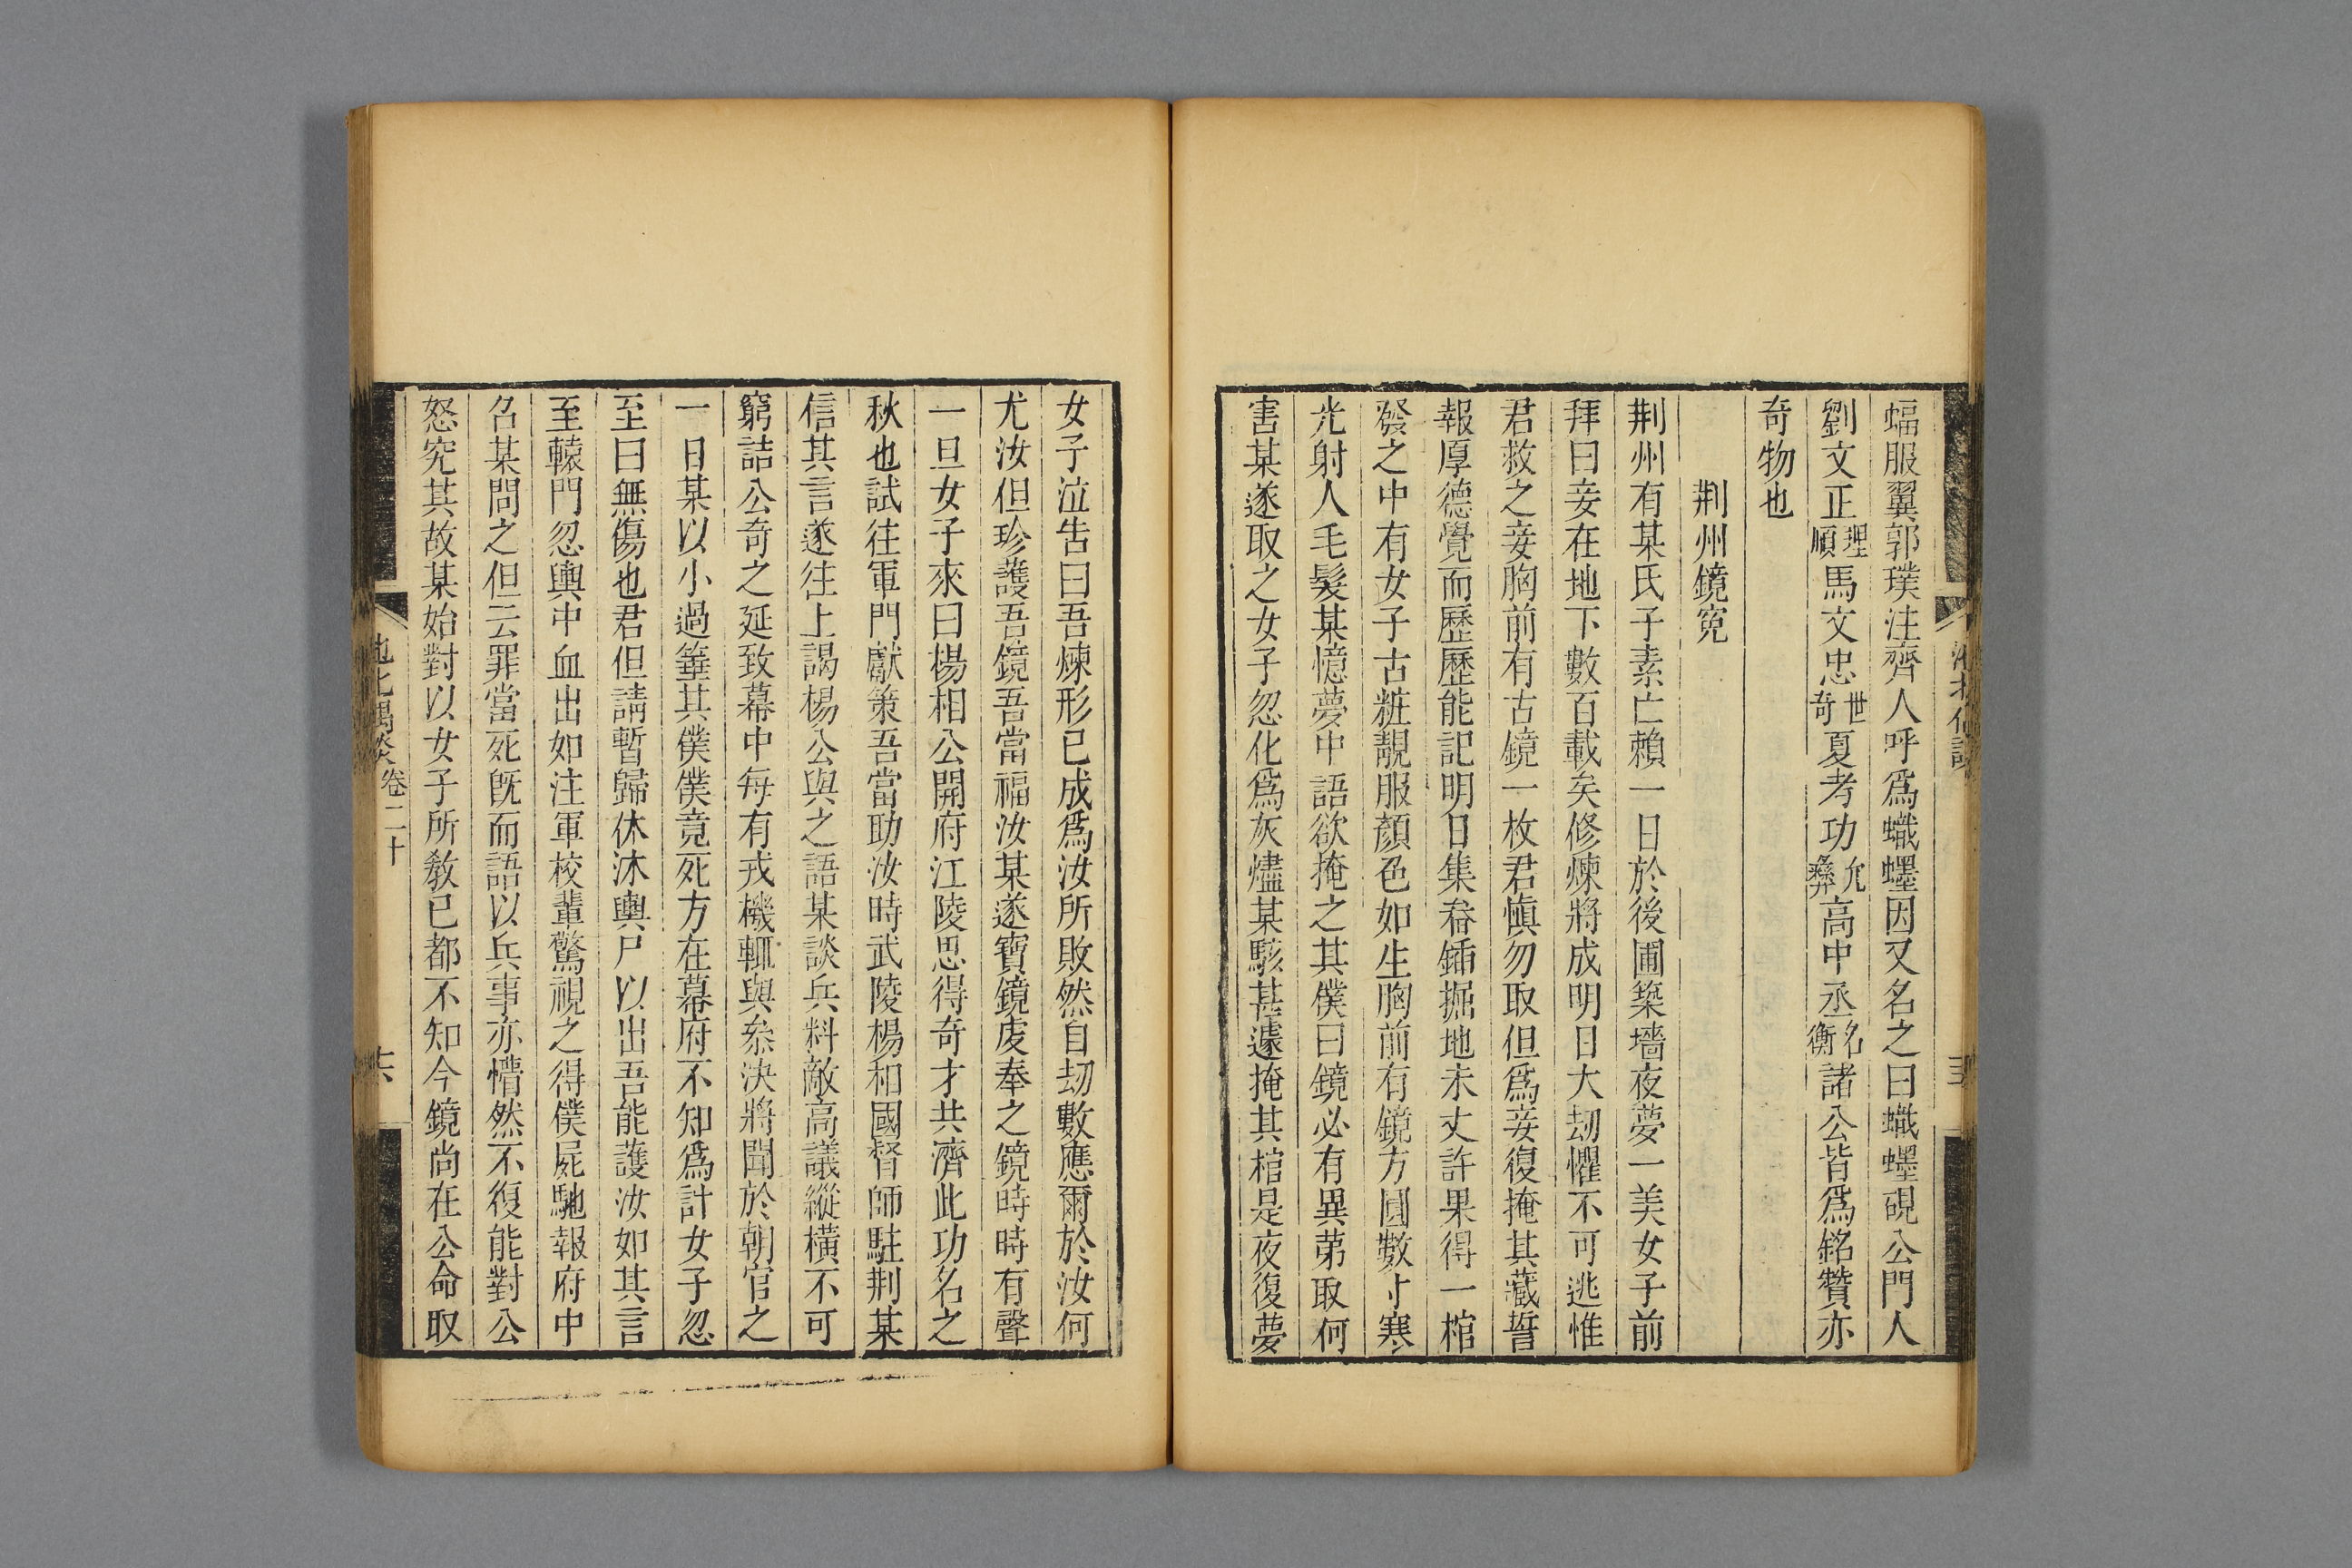 蝠服翼郭璞注齊人呼爲蟙䘃因又名之曰蟙䘃硯公門人
劉文正理順馬文忠世奇夏考功允彝高中丞名衡諸公皆爲銘贊亦
奇物也
荆州鏡寃
荆州有某氏子素亡賴一日於後圃築墻夜夢一美女子前
拜曰妾在地下數百載矣修煉將成明日大刼懼不可逃惟
君救之妾胸前有古鏡一枚君愼勿取但爲妾復掩其藏誓
報厚德覺而歷歷能記明日集畚鍤掘地未丈許果得一棺
發之中有女子古粧靚服顏色如生胸前有鏡方圓數寸寒
光射人毛髮某憶夢中語欲掩之其僕曰鏡必有異苐取何
害某遂取之女子忽化爲灰燼某駭甚遽掩其棺是夜復夢
女子泣告曰吾煉形已成爲汝所敗然自刼數應爾於汝何
尤汝但珍護吾鏡吾當福汝某遂寶鏡虔奉之鏡時時有聲
一旦女子來曰楊相公開府江陵思得奇才共濟此功名之
秋也試往軍門獻策吾當助汝時武陵楊相國督師駐荆某
信其言遂往上謁楊公與之語某談兵料敵高議縱橫不可
窮詰公奇之延致幕中每有戎機輒與叅決將聞於朝官之
一日某以小過箠其僕僕竟死方在幕府不知爲計女子忽
至曰無傷也君但請暫歸休沐輿尸以出吾能護汝如其言
至轅門忽輿中血出如注軍校輩驚視之得僕屍馳報府中
召某問之但云罪當死旣而語以兵事亦懵然不復能對公
怒究其故某始對以女子所敎已都不知今鏡尚在公命取
池北偶談 卷二十